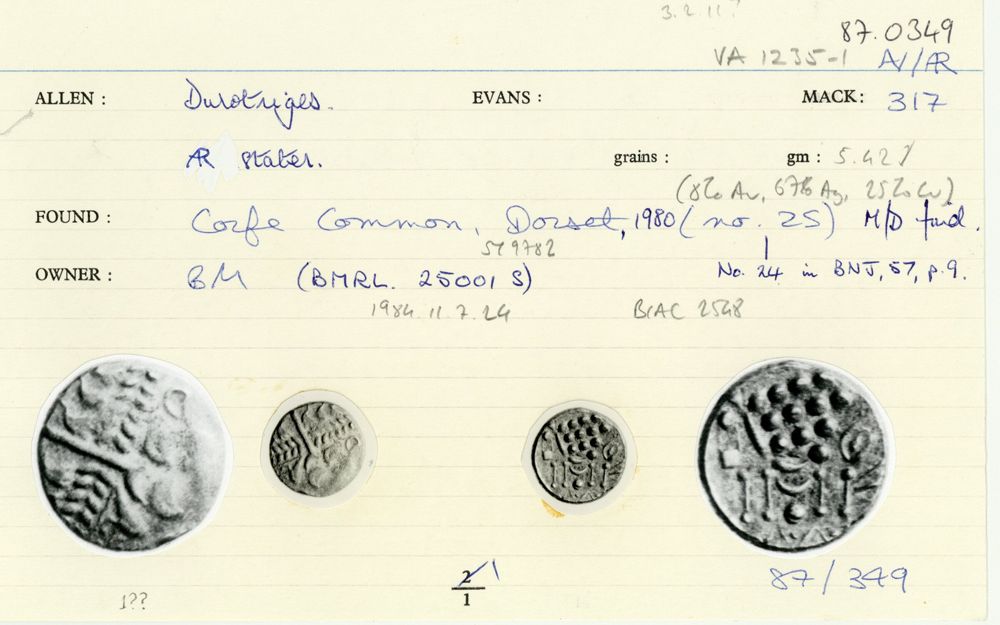 3.2.11?
87.0349
VA 1235-1 AV/AR
ALLEN : Durotriges. EVANS : MACK: 317
AR stater. grains : gm : 5.42
(8% Au, 67% Ag, 25% Cu)
FOUND : Corfe Common, Dorset, 1980 (no. 25) M/D find.
SY 9782
OWNER : BM (BMRL. 25001 S) No. 24 in BNJ, 57, p.9.
1984.11.7.24 BIAC 2548
2 1
1
87/349
1??